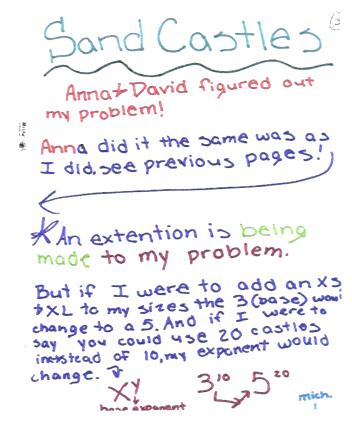 Sand Castles
Anna + David figured out
my problem!
Anna did it the same was as
I did, see previous pages!
An extention is being
made to my problem.
But if I were to add an XS
+ XL to my sizes the 3 (base) woul
change to a 5. And if I were to
say you could use 20 castles
instead of 10, my exponent would
change.
XY 3¹⁰ 5²⁰
base exponent
mich.